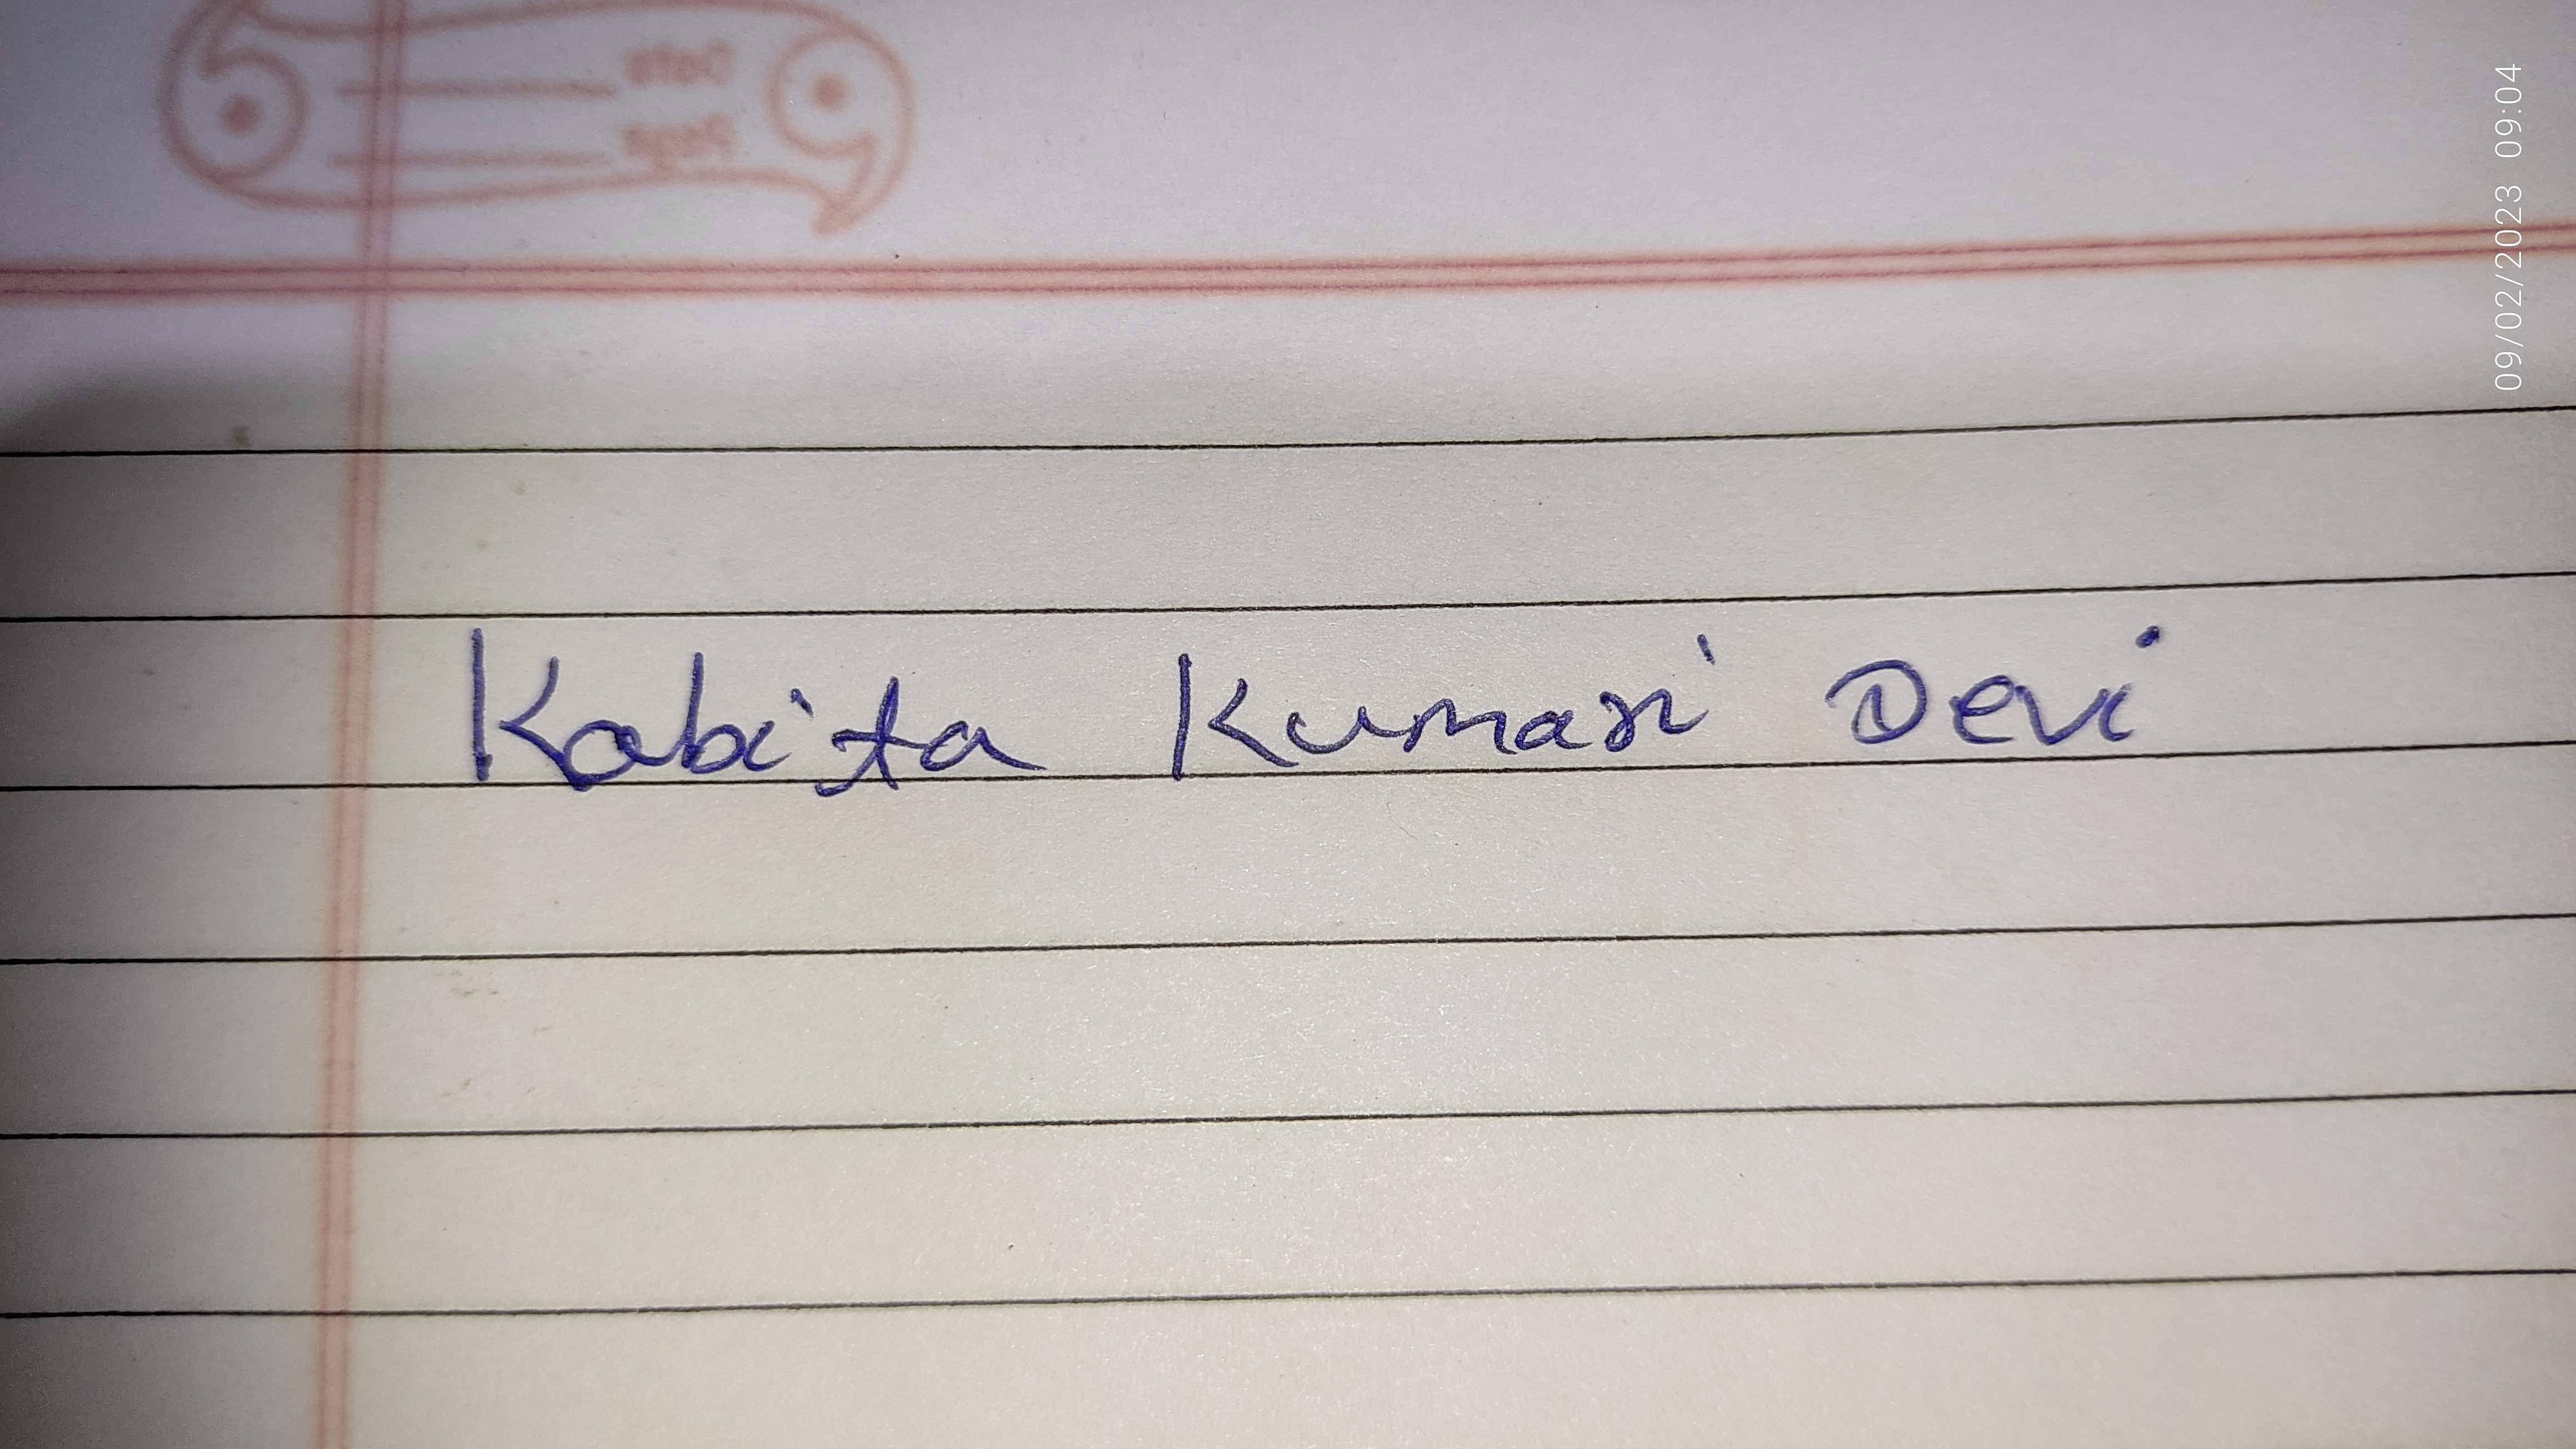 Date
Page
09/02/2023 09:04
Kabita Kumari Devi